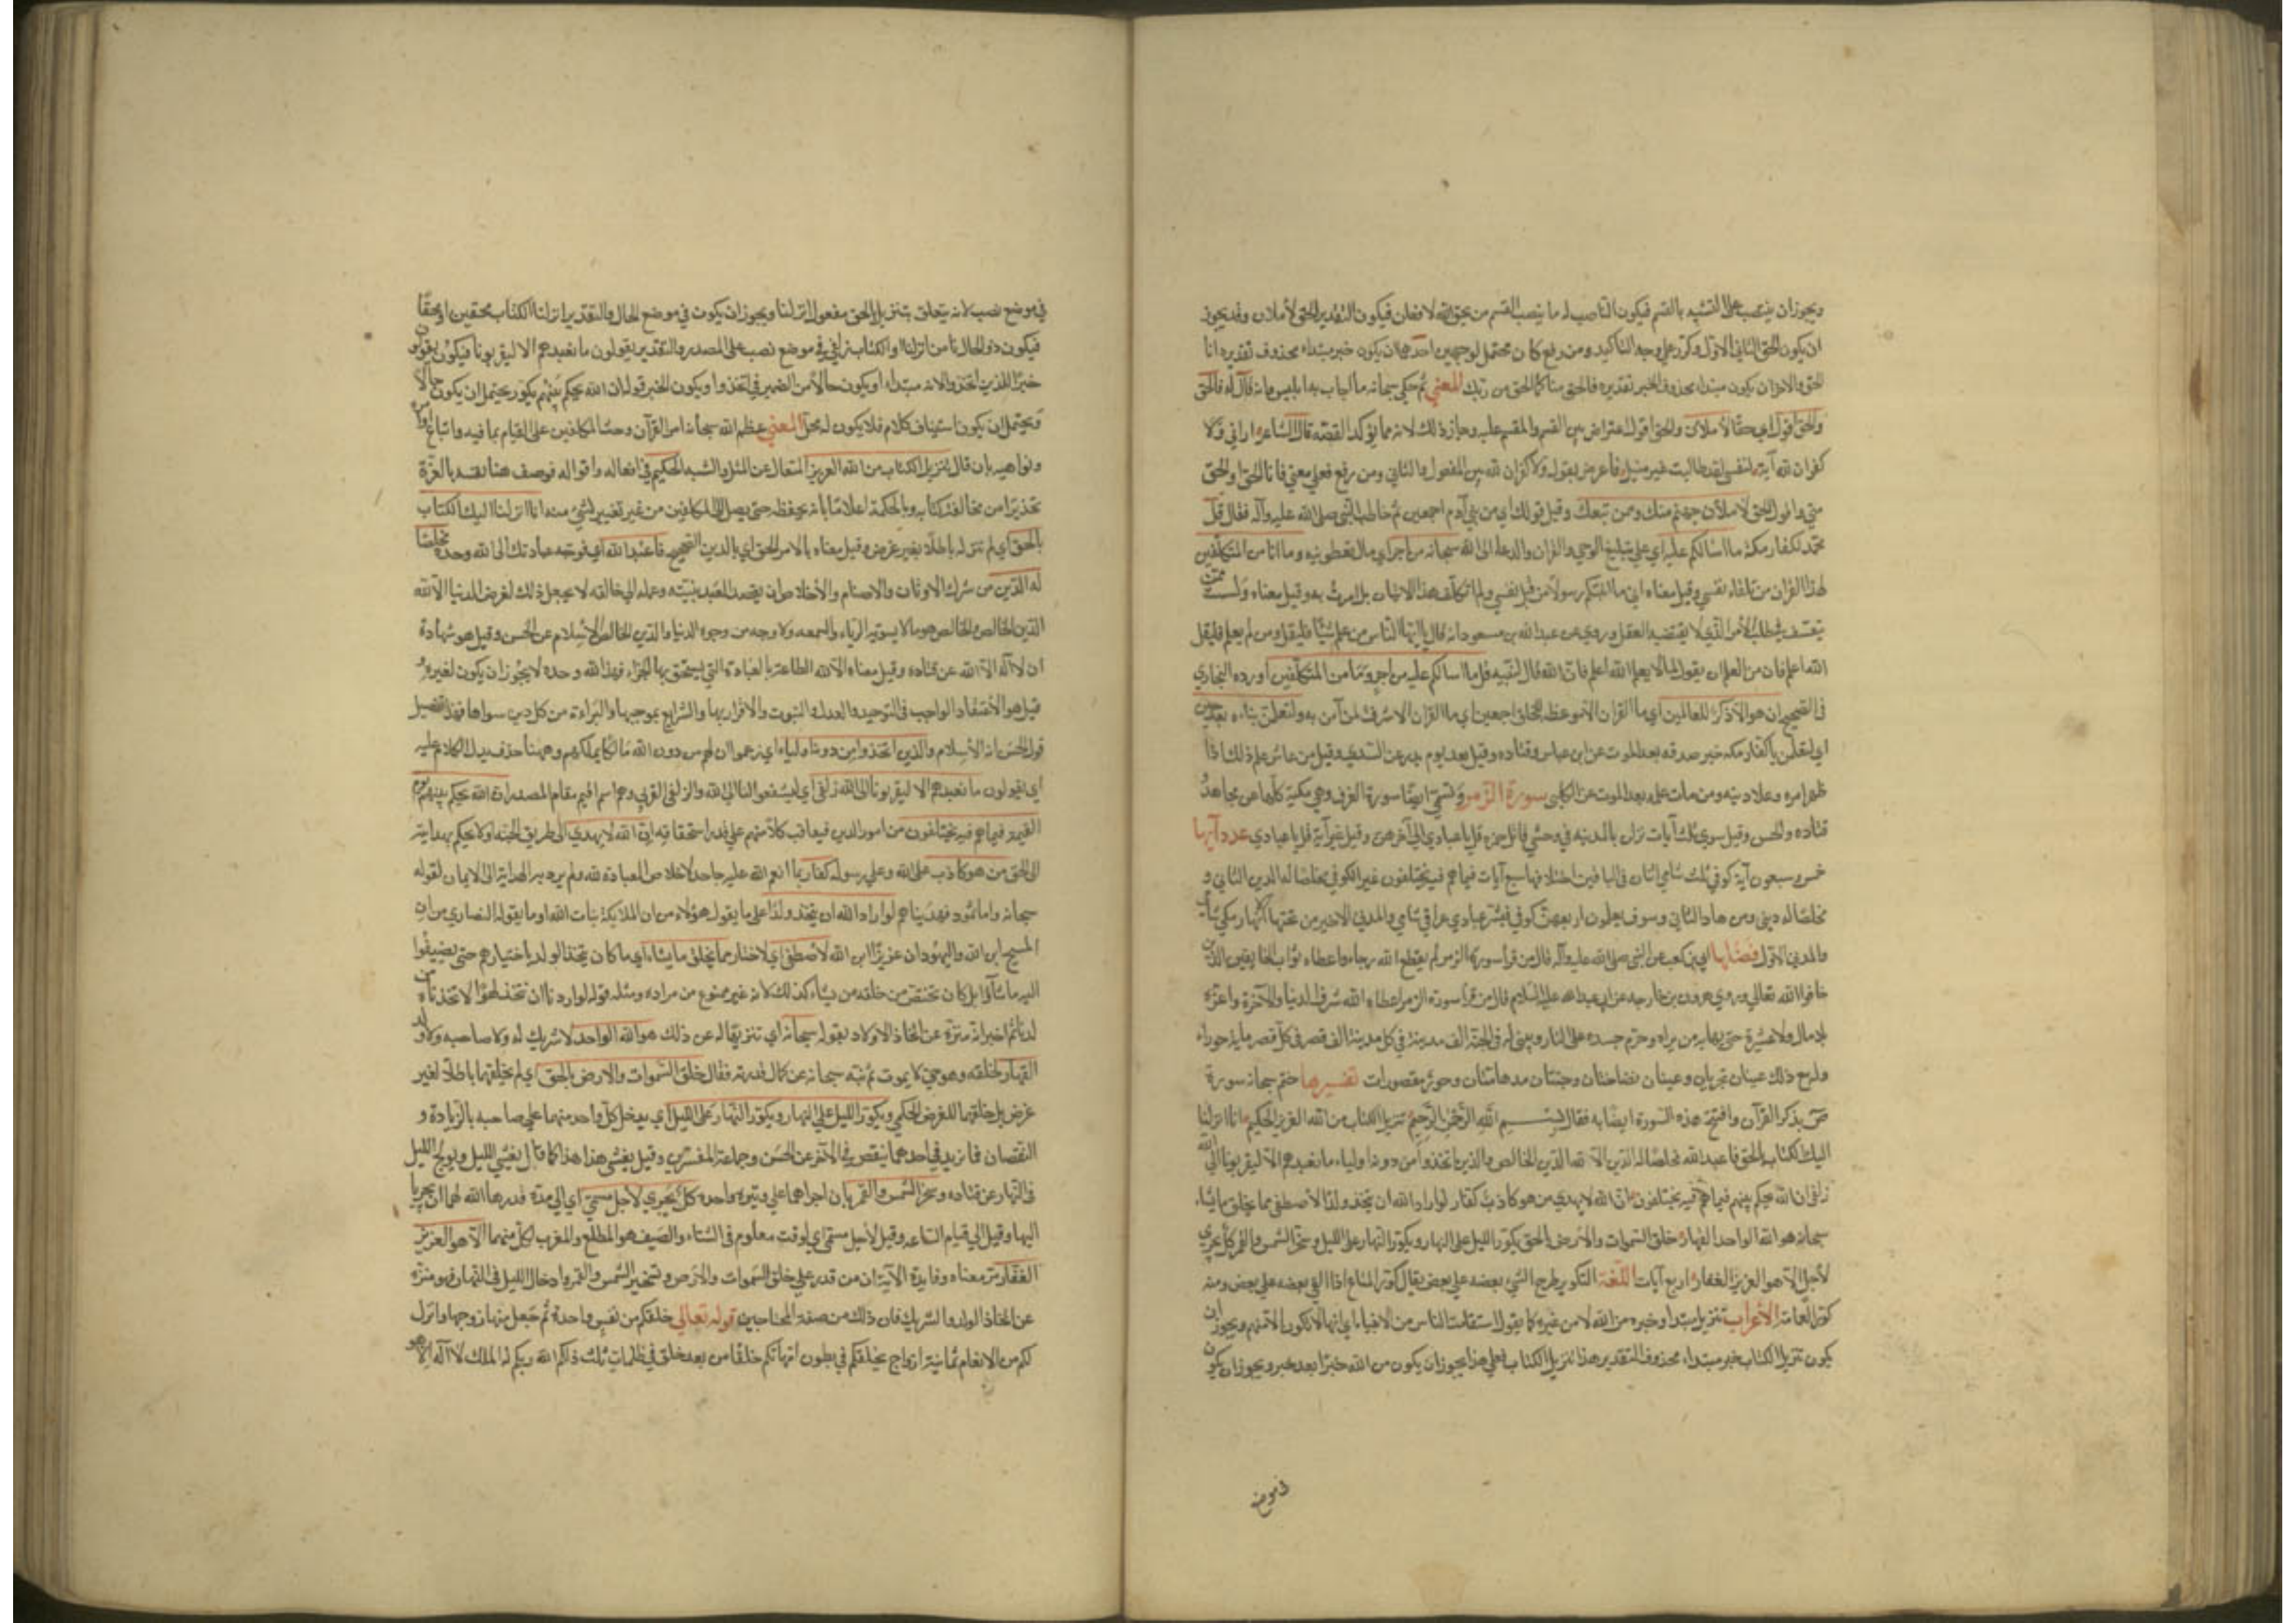 ويجوز ان ينتصب على التشبيه بالقسم فيكون الناصب له ما ينصب القسم من نحو الله لافعلن فيكون التقدير الحق لأملان وقد يجوز
ان يكون الحق الثاني الاول وكرر على وجه التاكيد ومن رفع كان محتمل لوجهين احدهما ان يكون خبر مبتداء محذوف تقديره انا
الحق والاخر ان يكون مبتداء محذوف الخبر تقديره فالحق مني كما الحق من ربك المعني ثم حكى سبحانه ما اجاب به ابليس بانه قال له فالحق
والحق اقول اي حقا لاملان والحق اقول اعتراض بين القسم والمقسم عليه وجاز ذلك لانه مما يؤكد القصه قال الشاعر اراني ولا
كفران لله آية لنفسي لقد طالبت غير منيل فاعرض بقوله ولا كفران لله بين المفعول والثاني ومن رفع فعلى معني فانا الحق او الحق
مني واقول الحق لاملأن جهنم منك وممن تبعك وقبل قولك اي من بني آدم اجمعين ثم خاطب النبي صلى الله عليه وآله فقال قل
محمد لكفار مكة ما اسالكم عليه اي على تبليغ الوحي والقران والدعاء الى الله سبحانه من اجر اي مال تعطونيه وما انا من المتكلفين
لهذا القران من تلقاء نفسي وقيل معناه اني ما اتيتكم رسولا من قبل نفسي ولم اتكلف هذا الاتيان بل امرت به وقيل معناه ولست ممن
يتعسف في طلب الامر الذي لا يقتضيه العقل وروي عن عبدالله بن مسعود انه قال يا ايها الناس من علم شيئا فليقل ومن لم يعلم فليقل
الله اعلم فان من العلم ان يقول لما لا يعلم الله اعلم فان الله قال لنبيه قل ما اسالكم عليه من اجر وما انا من المتكلفين اورده البخاري
في الصحيح ان هو الا ذكر للعالمين اي ما القران الا موعظة للخلق اجمعين اي ما القران الا شرف لمن آمن به ولتعلمن نباءه بعد حين
اي لتعلمن يا كفار مكه خبر صدقه بعد الموت عن ابن عباس وقتاده وقيل بعد يوم بدر عن السدي وقيل من عاش علم ذلك اذا
ظهر امره وعلا دينه ومن مات علمه بعد الموت عن الكلبي سورة الزمر وتسمي ايضا سورة الغرف وهي مكية كلها عن مجاهد و
قتاده والحسن وقيل سوي ثلث آيات نزلن بالمدينه في وحشي قاتل حمزه قل يا عبادي الي آخرهن وقيل غير آية قل يا عبادي عدد آيها
خمس وسبعون آية كوفي ثلث شامي اثنان في الباقين اختلافها سبع آيات فيما هم فيه يختلفون غير الكوفي مخلصا له الدين الثاني و
مخلصا له ديني ومن هاد الثاني وسوف يعلمون اربعهن كوفي فبشر عبادي عراقي شامي والمدني الاخير من تحتها الانهار مكي شامي
والمدني الاول فضلها ابي بن كعب عن النبي صلى الله عليه وآله قال من قرأ سورة الزمر لم يقطع الله رجاءه واعطاه ثواب الخايفين الذين
خافوا الله تعالي وروي هرون بن خارجه عن ابي عبدالله عليه السلام قال من قرأ سورة الزمر اعطاه الله شرف الدنيا والآخرة واعزه
بلا مال ولا عشيرة حتى يهابه من يراه وحرم جسده على النار ويبني له في الجنة الف مدينة في كل مدينة الف قصر في كل قصر مايه حوراء
وله مع ذلك عينان تجريان وعينان نضاختان وجنتان مدهامتان وحور مقصورات تفسيرها ختم سبحانه سورة
ص بذكر القرآن وافتتح هذه السورة ايضا به فقال بسم الله الرحمن الرحيم تنزيل الكتاب من الله العزيز الحكيم انا انزلنا
اليك الكتاب بالحق فاعبد الله مخلصا له الدين الا لله الدين الخالص والذين اتخذوا من دونه اولياء ما نعبدهم الا ليقربونا الى الله
زلفى ان الله يحكم بينهم فيما هم فيه يختلفون ان الله لا يهدي من هو كاذب كفار لو اراد الله ان يتخذ ولدا لاصطفى مما يخلق ما يشاء
سبحانه هو الله الواحد القهار خلق السموات والارض بالحق يكور الليل على النهار ويكور النهار على الليل وسخر الشمس والقمر كل يجري
لاجل الا هو العزيز الغفار اربع آيات اللغة التكوير طرح الشي بعضه علي بعض يقال كور المتاع اذا القي بعضه علي بعض ومنه
كور العمامة الأعراب تنزيل مبتدا وخبره من الله لا من غيره كما يقول استقامت الناس من الانبياء اي انها لا تكون الا منهم ويجوز ان
يكون تنزيل الكتاب خبر مبتداء محذوف التقدير هذا تنزيل الكتاب فعلى هذا يجوز ان يكون من الله خبرا بعد خبر ويجوز ان يكون
في موضع
في موضع نصب لانه يتعلق بتنزيل بالحق مفعول انزلنا ويجوز ان يكون في موضع الحال والتقدير انزلنا الكتاب محقين او محقا
فيكون ذو الحال نا من انزلنا او الكتاب زلفي في موضع نصب على المصدر والتقدير يقولون ما نعبدهم الا ليقربونا فيكون يقولون
خبرا للذين اتخذوا لانه مبتداء او يكون حالا من الضمير في اتخذوا ويكون الخبر قوله ان الله يحكم بينهم يكور يحتمل ان يكون حالا
ويحتمل ان يكون استيناف كلام فلا يكون له محل المعني عظم الله سبحانه امر القرآن وحث المكلفين على القيام بما فيه واتباع اوامره
ونواهيه بان قال تنزيل الكتاب من الله العزيز المتعال عن المثل والشبه الحكيم في افعاله واقواله فوصف هنا نفسه بالعزة
تحذيرا من مخالفة كتابه وبالحكمة اعلاما بانه يحفظه حتى يصل الى المكلفين من غير تغيير لشي منه انا انزلنا اليك الكتاب
بالحق اي لم ننزله باطلا بغير غرض وقيل معناه بالامر الحق اي بالدين الصحيح فاعبد الله اي توجه عبادتك الى الله وحده مخلصا
له الدين من شرك الاوثان والاصنام والاخلاص ان يقصد العبد بنيته وعمله الي خالقه لا يجعل ذلك لغرض الدنيا الا لله
الدين الخالص والخالص هو ما لا يشوبه الرياء والسمعه ولا وجه من وجوه الدنيا والدين الخالص الاسلام عن الحسن وقيل هو شهادة
ان لا اله الا الله عن قتاده وقيل معناه الا لله الطاعة بالعبادة التي يستحق بها الجزاء فهذا لله وحده لا يجوز ان يكون لغيره و
قيل هو الاعتقاد الواجب في التوحيد والعدل والنبوت والاقرار بها والشرايع بموجبها والبراءة من كل دين سواها فهذا تفصيل
قول الحسن انه الاسلام والذين اتخذوا من دونه اولياء اي زعموا ان لهم من دون الله مالكا يملكهم وههنا حذف يدل الكلام عليه
اي يقولون ما نعبدهم الا ليقربونا الى الله زلفى اي ليشفعوا لنا الي الله والزلفي القربي وهو اسم اقيم مقام المصدر ان الله يحكم بينهم يوم
القيمه فيما هم فيه يختلفون من امور الدين فيعاقب كلا منهم علي قدر استحقاقه ان الله لا يهدي الى طريق الجنه او لا يحكم بهدايته
الى الحق من هو كاذب على الله وعلي رسوله كفار بما انعم الله عليه جاحد لاخلاص العبادة لله ولم يرد به الهداية الى الايمان لقوله
سبحانه واما ثمود فهديناهم لو اراد الله ان يتخذ ولدا على ما يقول هؤلاء من ان الملائكة بنات الله او ما يقوله النصاري من ان
المسيح ابن الله واليهود ان عزيرا ابن الله لاصطفى اي لاختار مما يخلق ما يشاء اي ما كان يتخذ الولد باختيارهم حتى يضيفوا
اليه ما شاؤا بل كان يختص من خلقه من يشاء كذلك لانه غير ممنوع من مراده ومثله قوله لو اردنا ان نتخذ لهوا لاتخذناه من
لدنا ثم اخبر انه منزه عن اتخاذ الاولاد بقوله سبحانه اي تنزيها له عن ذلك هو الله الواحد لا شريك له ولا صاحبه ولا ولد
القهار لخلقه وهو حي لا يموت ثم نبه سبحانه عن كمال قدرته فقال خلق السموات والارض بالحق اي لم يخلقهما باطلا لغير
غرض بل خلقهما للغرض الحكمي ويكور الليل علي النهار ويكور النهار على الليل اي يدخل كل واحد منهما علي صاحبه بالزيادة و
النقصان فما زيد في احدهما ينقص في الآخر عن الحسن وجماعة المفسرين وقيل يغشى هذا هذا كما قال يغشي الليل ويولج الليل
في النهار عن قتاده وسخر الشمس والقمر بان اجراهما علي وتيره واحده كل يجري لاجل مسمى اي الي مدة قدرها الله لهما ان يجريا
اليها وقيل الي قيام الساعه وقيل لاجل مسمى اي لوقت معلوم في الشتاء والصيف هو المطلع والمغرب لكل منهما الا هو العزيز
الغفار مر معناه وفايدة الآية ان من قدر علي خلق السموات والارض وتسخير الشمس والقمر وادخال الليل في النهار فهو منزه
عن اتخاذ الولد والشريك فان ذلك من صفة المحتاجين قوله تعالى خلقكم من نفس واحدة ثم جعل منها زوجها وانزل
لكم من الانعام ثمانية ازواج يخلقكم في بطون امهاتكم خلقا من بعد خلق في ظلمات ثلث ذلكم الله ربكم له الملك لا اله الا هو